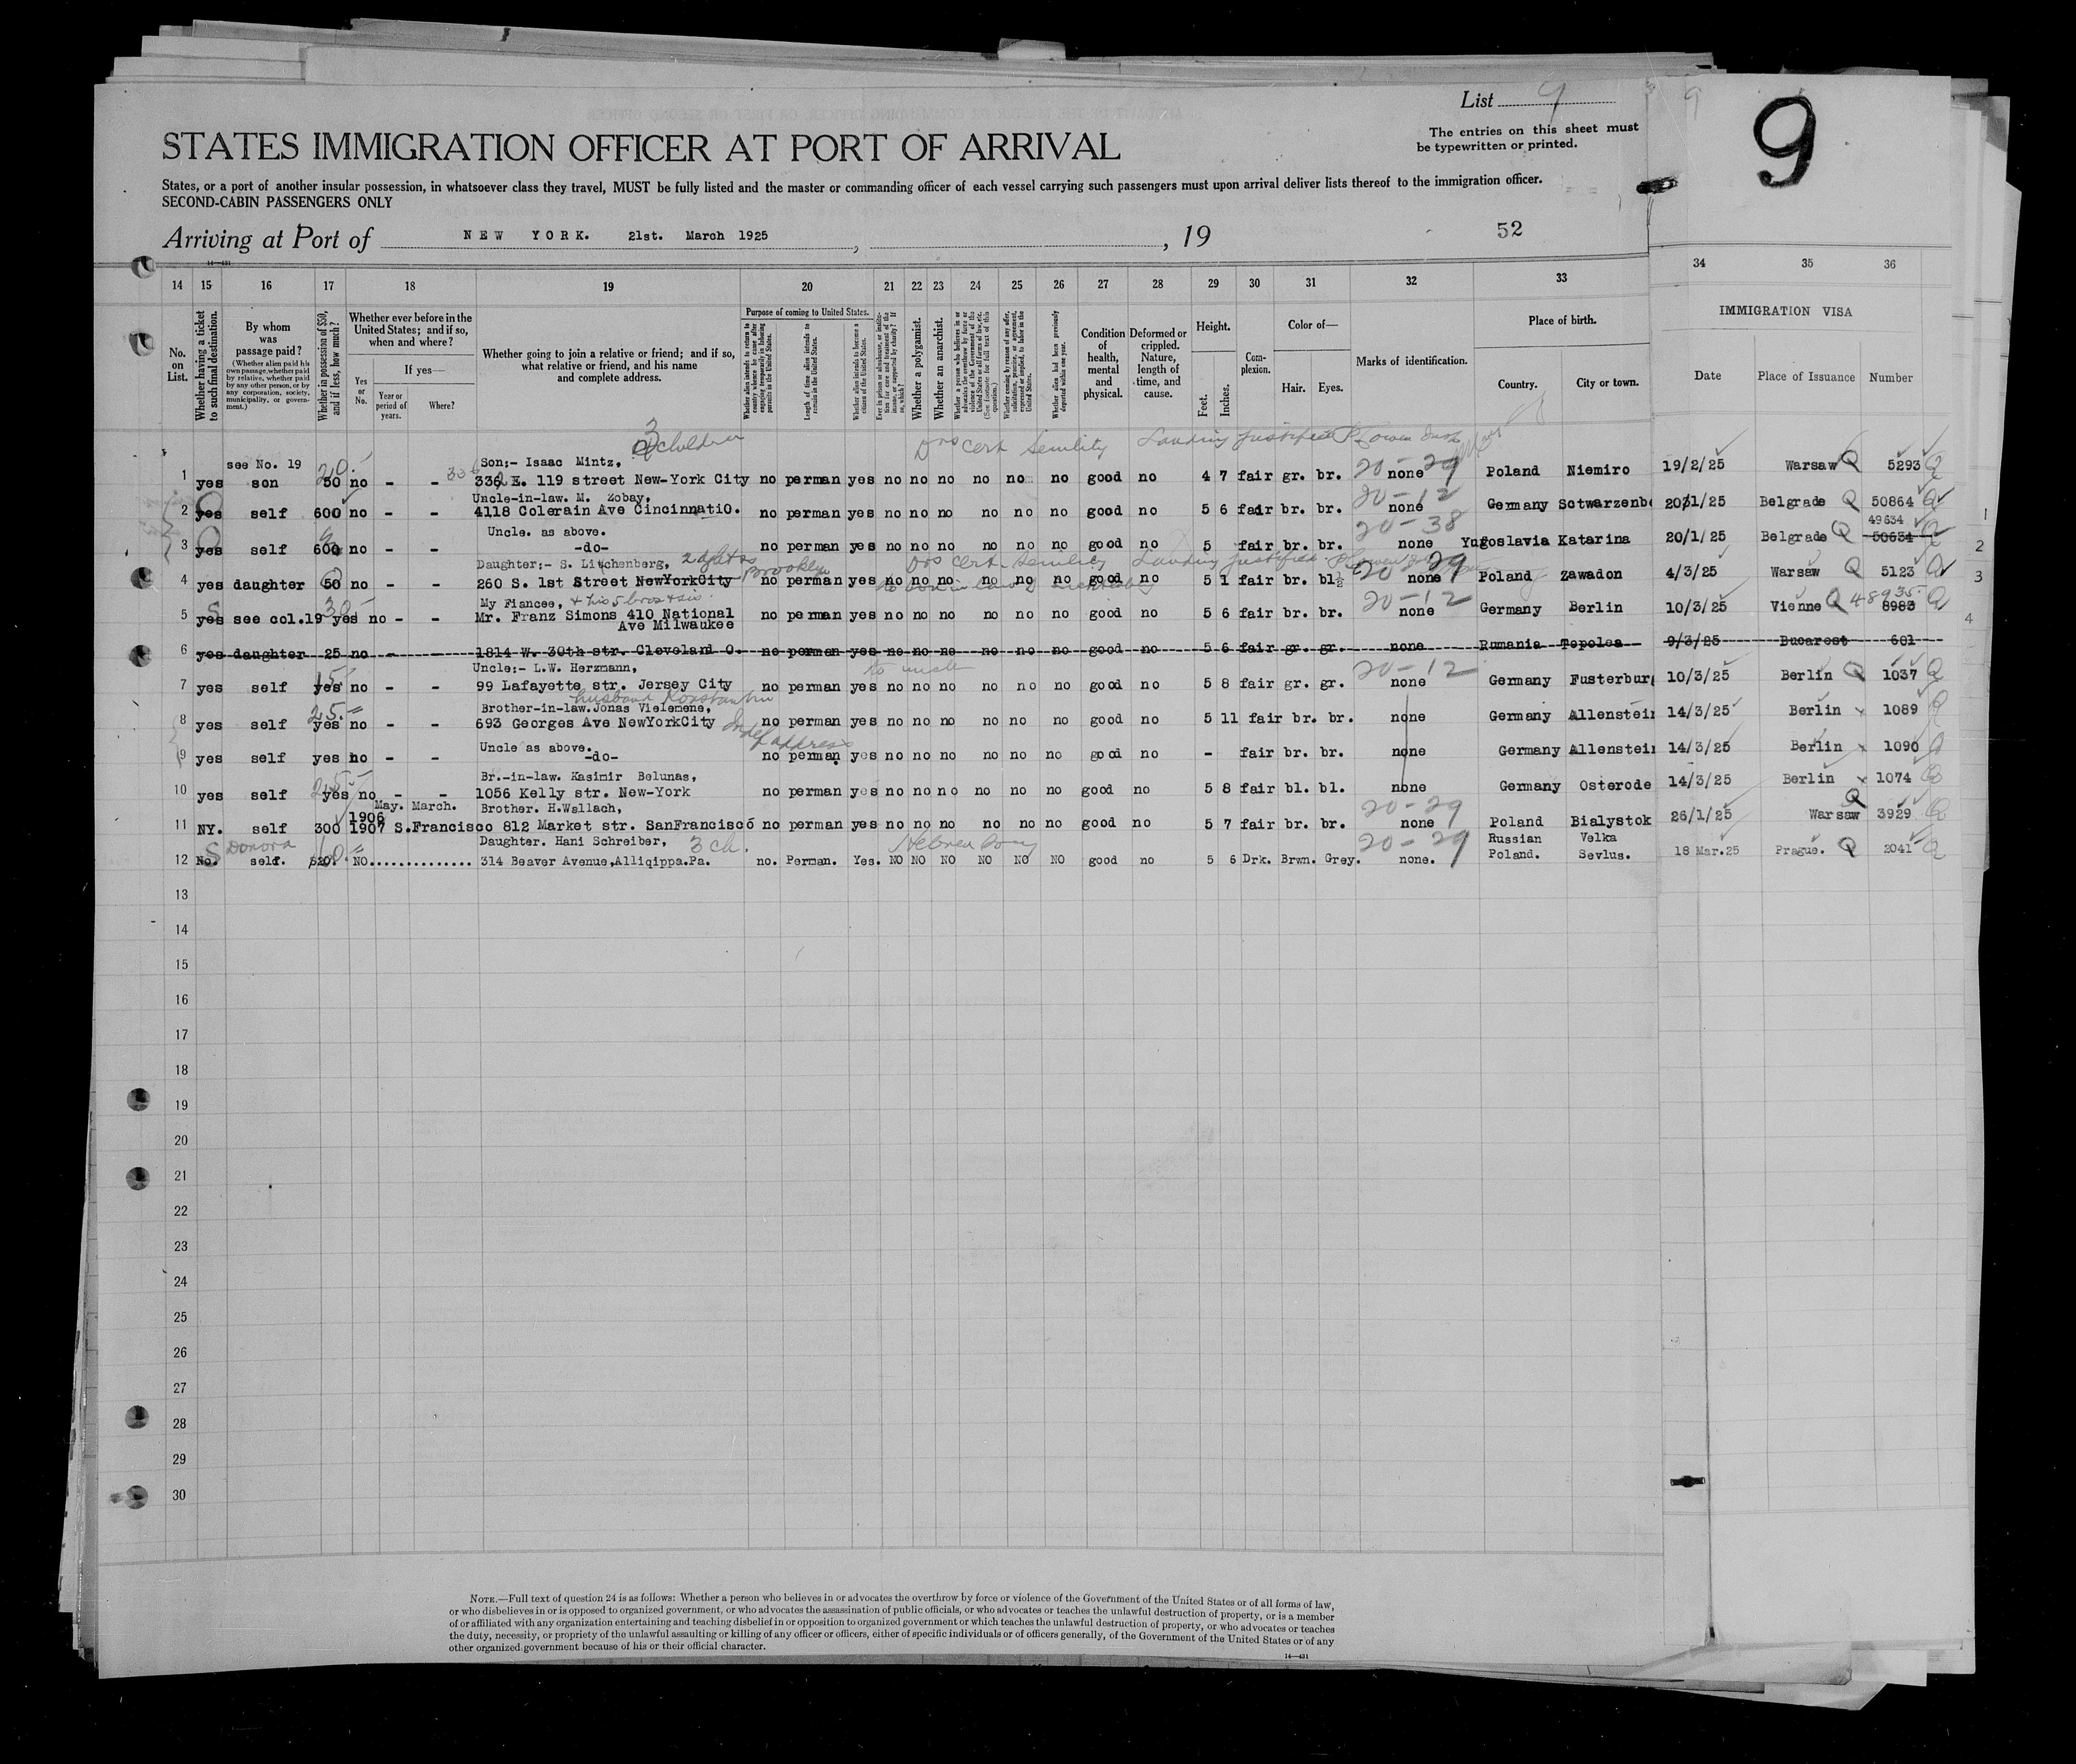 List 9
The entries on this sheet must
be typewritten or printed.
9
STATES IMMIGRATION OFFICER AT PORT OF ARRIVAL
States, or a port of another insular possession, in whatsoever class they travel, MUST be fully listed and the master or commanding officer of each vessel carrying such passengers must upon arrival deliver lists thereof to the immigration officer.
SECOND-CABIN PASSENGERS ONLY
Arriving at Port of NEW YORK. 21st. March 1925, , 19
52
14 15 16 17 18 19 20 21 22 23 24 25 26 27 28 29 30 31 32 33 34 35 36
No. on List.
Whether having a ticket to such final destination.
By whom was passage paid?
(Whether alien paid his own passage, whether paid by relative, whether paid by any other person, or by any corporation, society, municipality, or government.)
Whether in possession of $50, and if less, how much?
Whether ever before in the United States; and if so, when and where?
Yes or No.
If yes—
Year or period of years.
Where?
Whether going to join a relative or friend; and if so, what relative or friend, and his name and complete address.
Purpose of coming to United States.
Length of time alien intends to remain in the United States.
Whether alien intends to become a citizen of the United States.
Whether a polygamist.
Whether an anarchist.
Condition of health, mental and physical.
Deformed or crippled. Nature, length of time, and cause.
Height.
Feet. Inches.
Complexion.
Color of—
Hair. Eyes.
Marks of identification.
Place of birth.
Country. City or town.
IMMIGRATION VISA
Date Place of Issuance Number
3 children Drs cert Senility Landing justified
see No. 19 Son;- Isaac Mintz,
1 yes son 50 no - - 336 E. 119 street New-York City no perman yes no no no no no no good no 4 7 fair gr. br. none 20-29 Poland Niemiro 19/2/25 Warsaw Q 5293
Uncle-in-law. M. Zobay,
2 yes self 600 no - - 4118 Colerain Ave CincinnatiO. no perman yes no no no no no no good no 5 6 fair br. br. none 20-12 Germany Sotwarzenb 20/1/25 Belgrade Q 50864
Uncle. as above. 49634
3 yes self 600 no - - -do- no perman yes no no no no no no good no 5 fair br. br. none 20-38 Yugoslavia Katarina 20/1/25 Belgrade Q 50634
Daughter:- S. Litchenberg, Brooklyn Drs cert Senility Landing justified
4 yes daughter 50 no - - 260 S. 1st Street NewYorkCity no perman yes no no no no no no good no 5 1 fair br. bl. none 20-29 Poland Zawadon 4/3/25 Warsaw Q 5123
My Fiancee, 48935
5 yes see col.19 yes no - - Mr. Franz Simons 410 National no perman yes no no no no no no good no 5 6 fair br. br. none 20-12 Germany Berlin 10/3/25 Vienne Q 8983
Ave Milwaukee
6 yes daughter 25 no - - 1814 W. 30th str. Cleveland O. no perman yes no no no no no no good no 5 6 fair gr. gr. none Rumania Tepolea 9/3/25 Bucarest 601
Uncle:- L.W. Herzmann, to uncle
7 yes self yes no - - 99 Lafayette str. Jersey City no perman yes no no no no no no good no 5 8 fair gr. gr. none 20-12 Germany Fusterburg 10/3/25 Berlin Q 1037
husband Konstantin
Brother-in-law.Jonas Vielemene,
8 yes self yes no - - 693 Georges Ave NewYorkCity no perman yes no no no no no no good no 5 11 fair br. br. none Germany Allenstein 14/3/25 Berlin 1089
Uncle as above. address
9 yes self yes no - - -do- no perman yes no no no no no no good no - fair br. br. none Germany Allenstein 14/3/25 Berlin 1090
Br.-in-law. Kasimir Belunas,
10 yes self yes no - - 1056 Kelly str. New-York no perman yes no no no no no no good no 5 8 fair bl. bl. none Germany Osterode 14/3/25 Berlin 1074
1906 May. March. Brother. H.Wallach,
11 NY. self 300 1907 S.Francisco 812 Market str. SanFrancisco no perman yes no no no no no no good no 5 7 fair br. br. none 20-29 Poland Bialystok 26/1/25 Warsaw Q 3929
Donora Daughter. Hani Schreiber, 3 ch. Hebrew Russian Velka
12 No. self. $20. NO. 314 Beaver Avenue,Alliqippa.Pa. no. Perman. Yes. NO NO NO NO NO NO good no 5 6 Drk. Brwn. Grey. none. 20-29 Poland. Sevlus. 18 Mar.25 Prague. Q 2041
13
14
15
16
17
18
19
20
21
22
23
24
25
26
27
28
29
30
1
2
3
4
NOTE.—Full text of question 24 is as follows: Whether a person who believes in or advocates the overthrow by force or violence of the Government of the United States or of all forms of law,
or who disbelieves in or is opposed to organized government, or who advocates the assassination of public officials, or who advocates or teaches the unlawful destruction of property, or is a member
of or affiliated with any organization entertaining and teaching disbelief in or opposition to organized government or which teaches the unlawful destruction of property, or who advocates or teaches
the duty, necessity, or propriety of the unlawful assaulting or killing of any officer or officers, either of specific individuals or of officers generally, of the Government of the United States or of any
other organized government because of his or their official character.
14—431